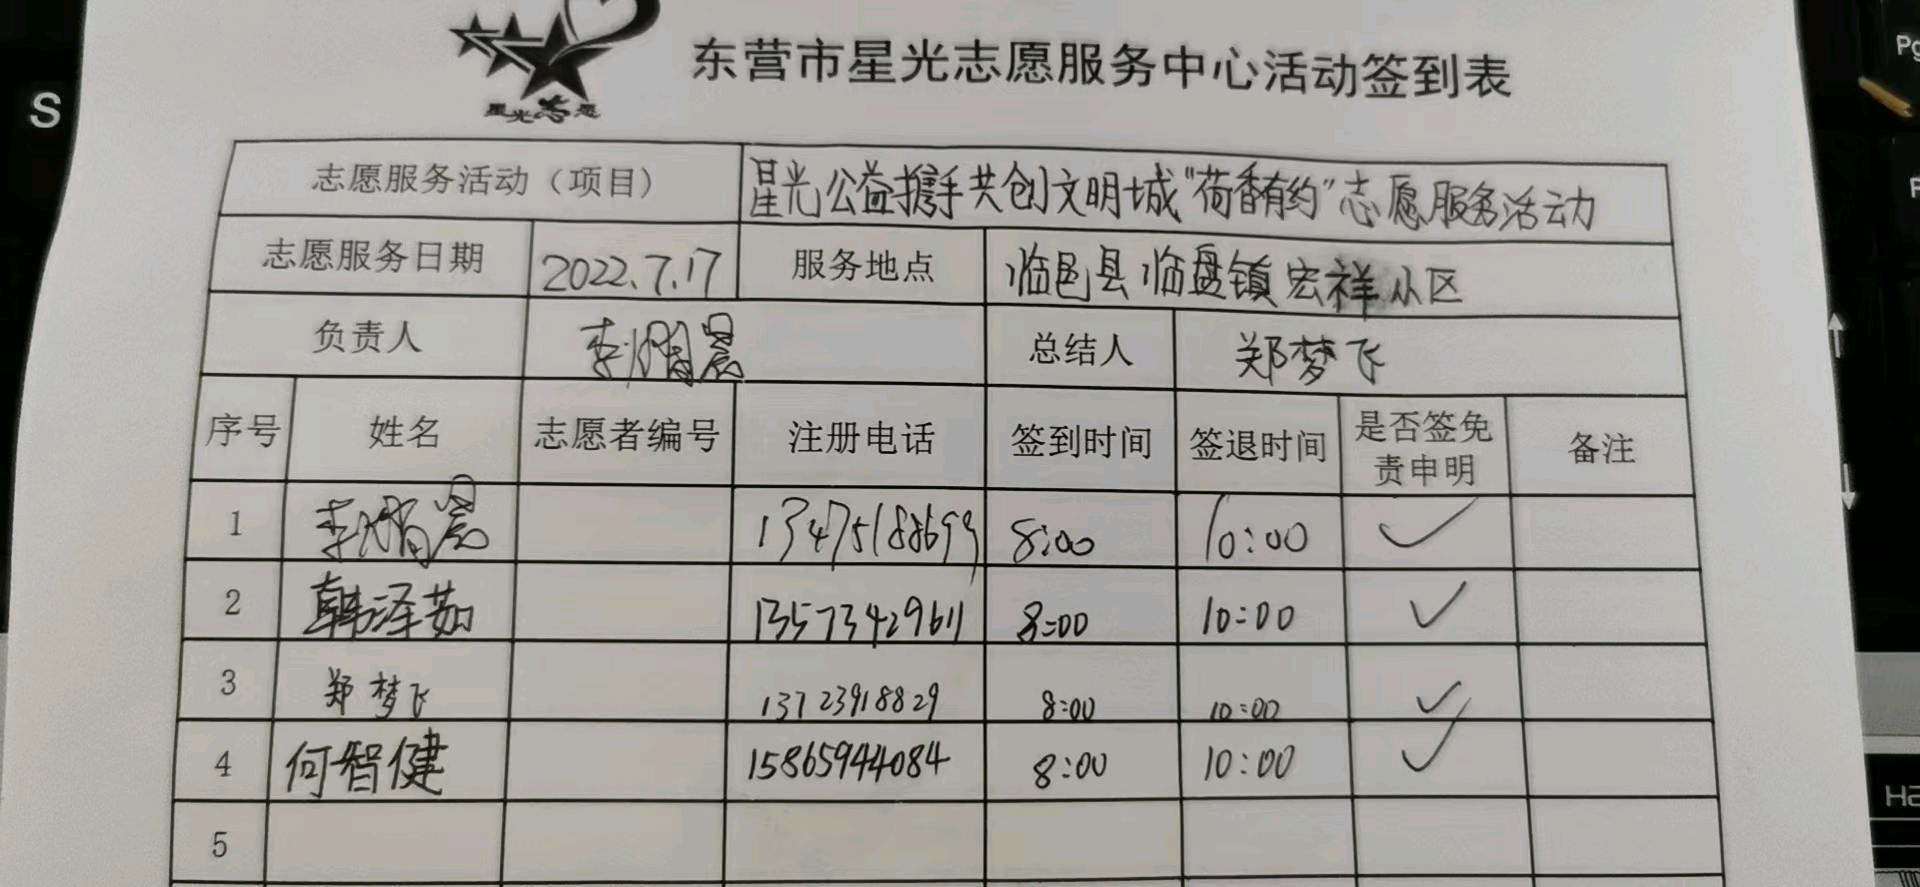 星光志愿
东营市星光志愿服务中心活动签到表
志愿服务活动（项目） 星光公益携手共创文明城“荷香有约”志愿服务活动
志愿服务日期 2022.7.17 服务地点 临邑县临盘镇宏祥小区
负责人 李 晨 总结人 郑梦飞
序号 姓名 志愿者编号 注册电话 签到时间 签退时间 是否签免责申明 备注
1 李 晨 13475188699 8:00 10:00 ✓
2 韩泽茹 13573429611 8:00 10:00 ✓
3 郑梦飞 13723918829 8:00 10:00 ✓
4 何智健 15865944084 8:00 10:00 ✓
5
S